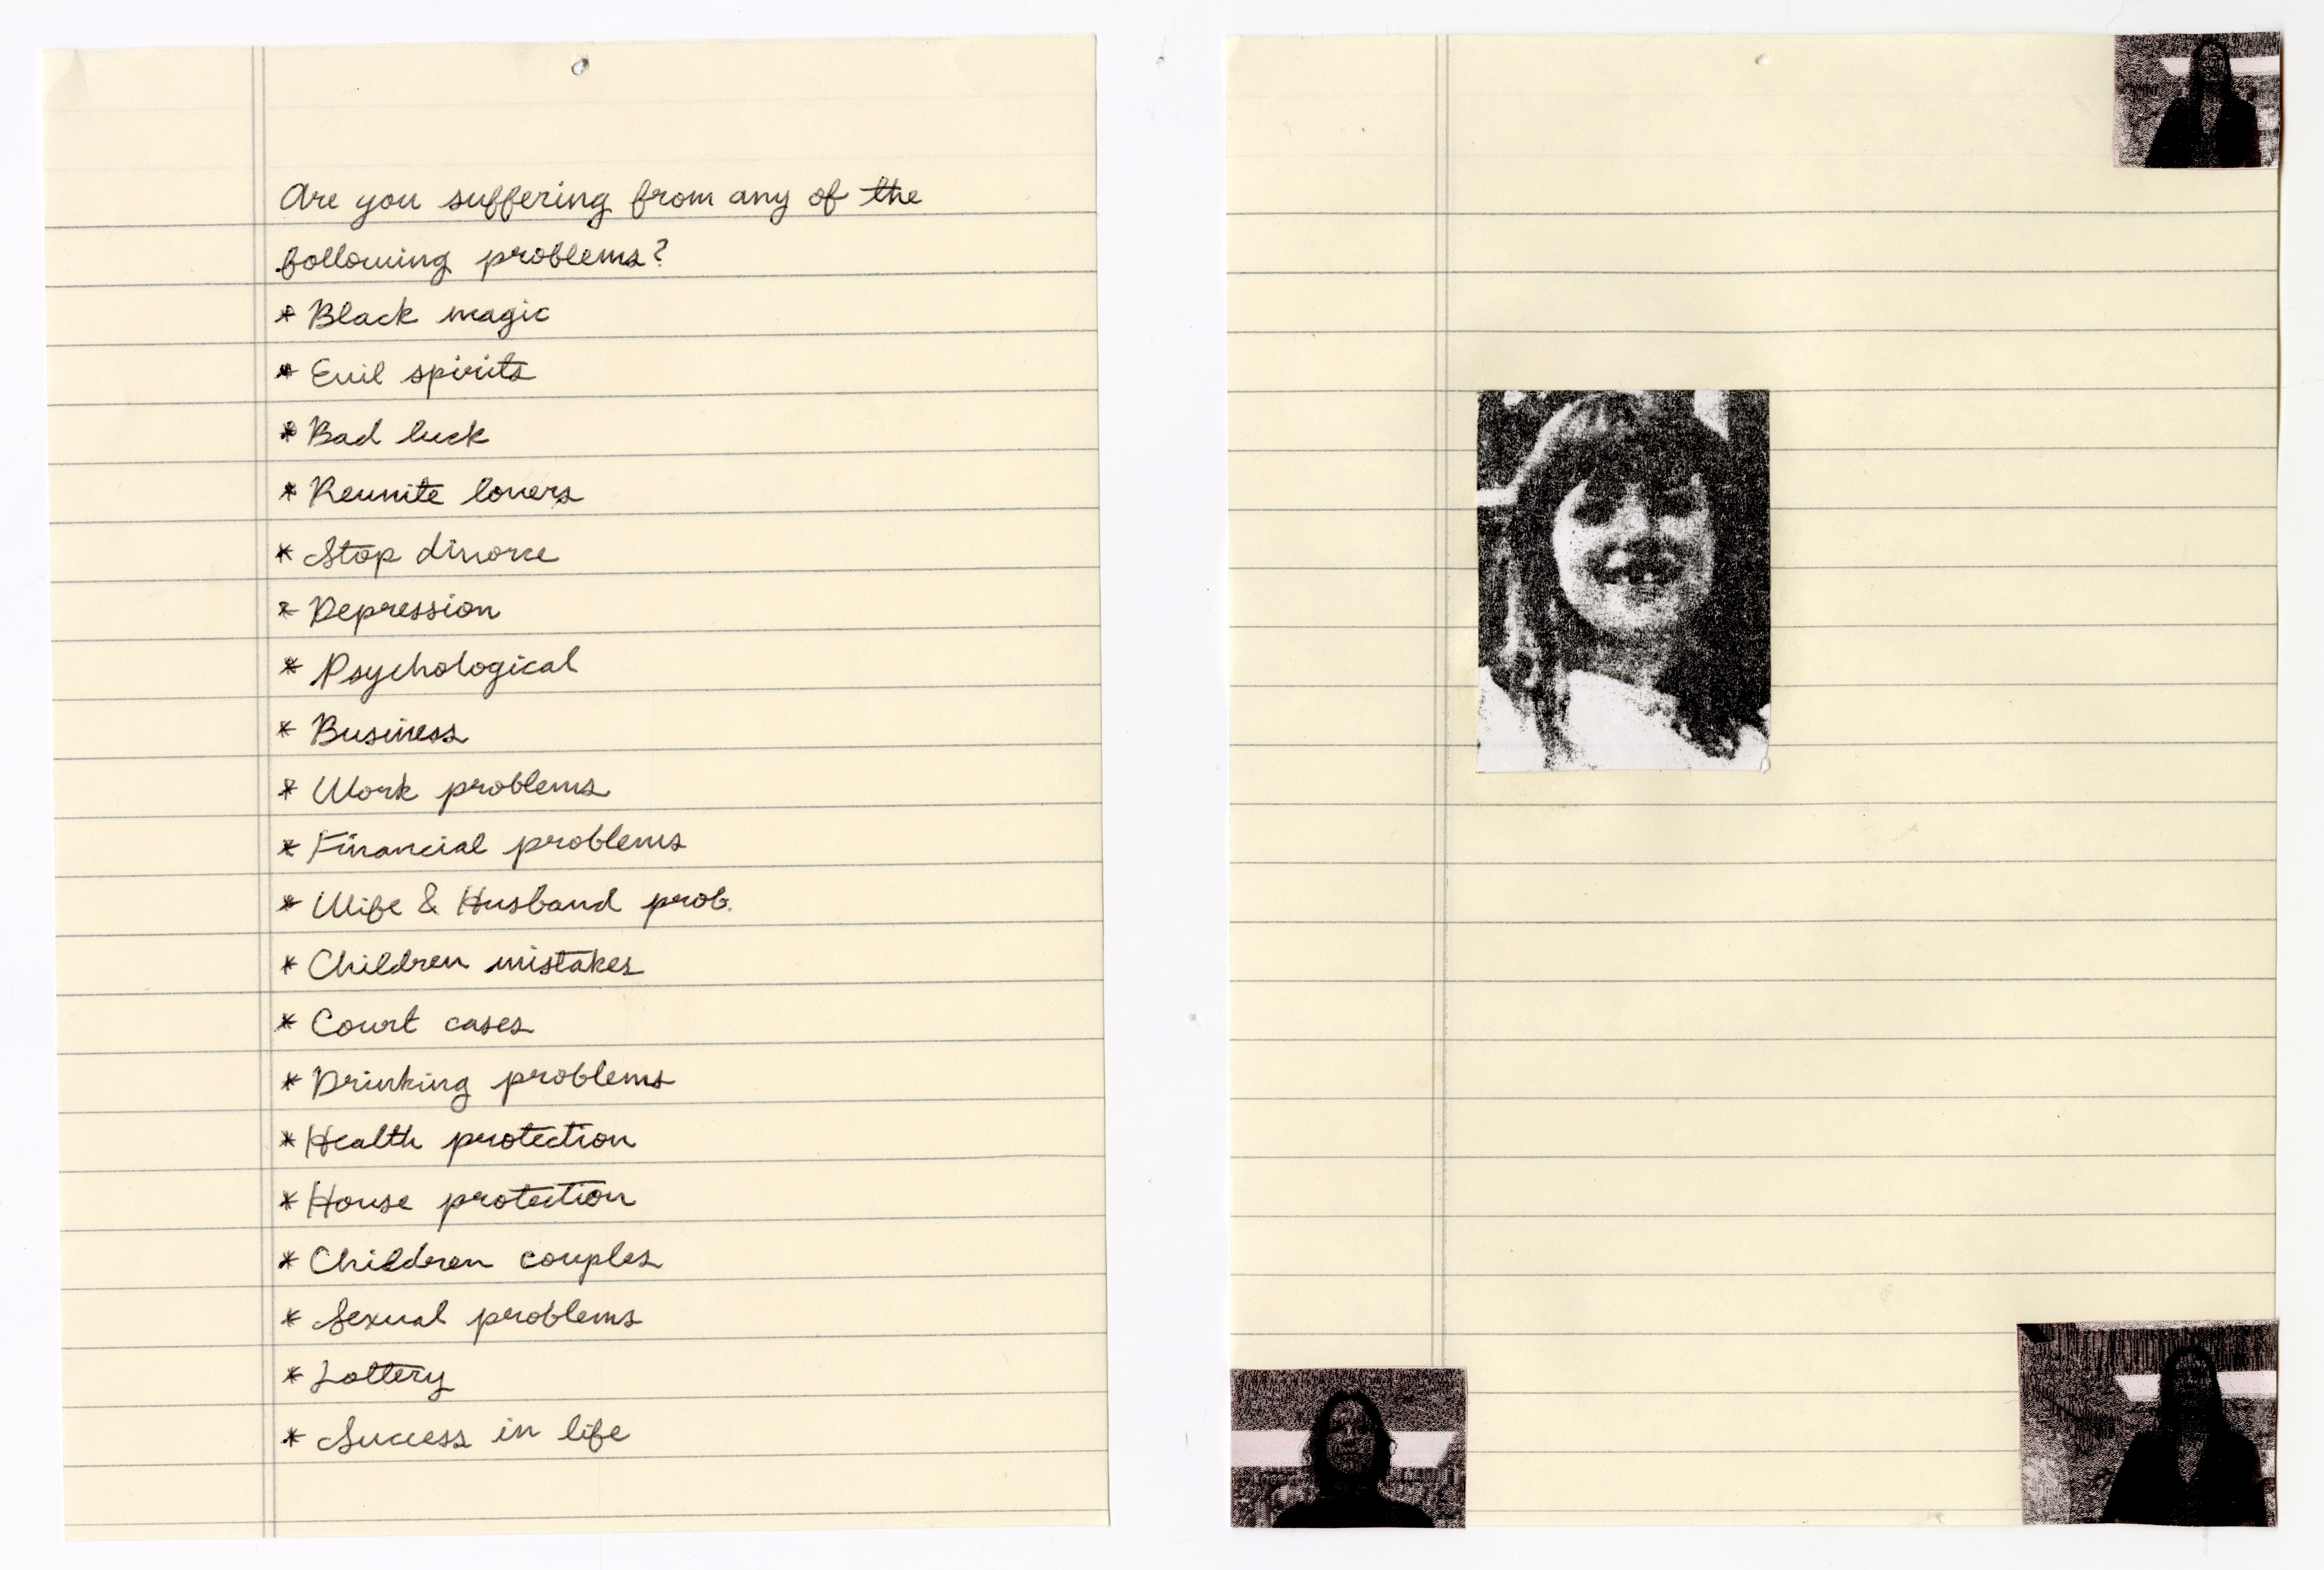 Are you suffering from any of the
following problems?
* Black magic
* Evil spirits
* Bad luck
* Reunite lovers
* Stop divorce
* Depression
* Psychological
* Business
* Work problems
* Financial problems
* Wife & Husband prob.
* Children mistakes
* Court cases
* Drinking problems
* Health protection
* House protection
* Children couples
* Sexual problems
* Lottery
* Success in life